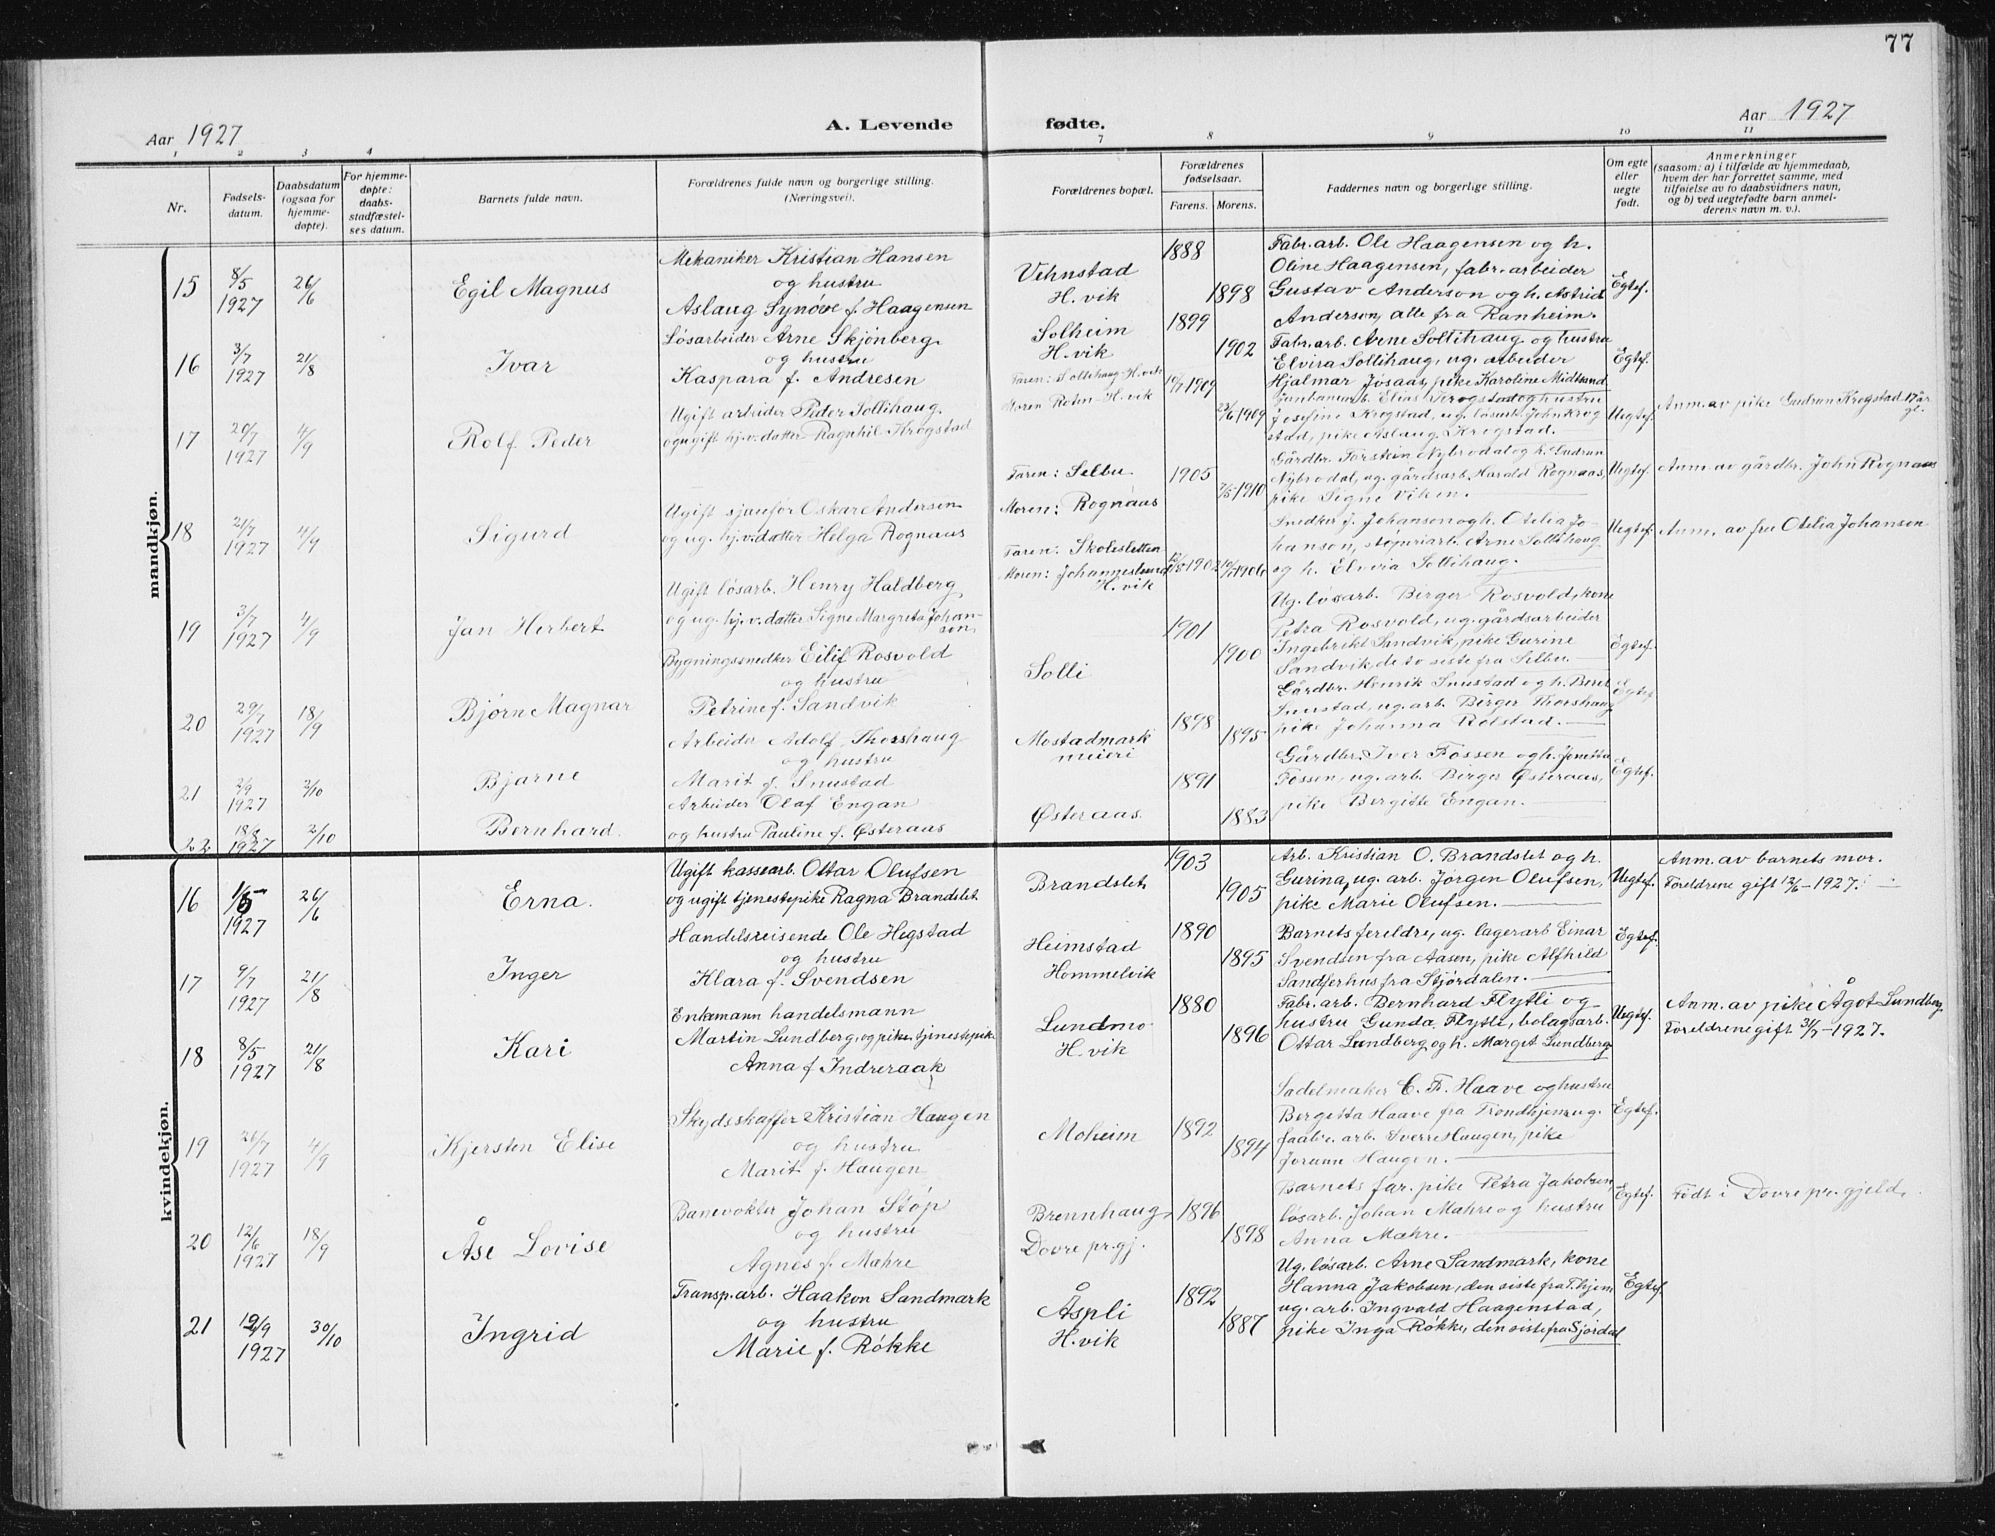 77
Aar 1927
A. Levende fødte.
Aar 1927
1 2 3 4 7 8 9 10 11
Nr.
Fødsels-
datum.
Daabsdatum
(ogsaa for
hjemme-
døpte).
For hjemme-
døpte:
daabs-
stadfæstel-
ses datum.
Barnets fulde navn.
Forældrenes fulde navn og borgerlige stilling.
(Næringsvei).
Forældrenes bopæl.
Forældrenes
fødselsaar.
Farens. Morens.
Faddernes navn og borgerlige stilling.
Om egte
eller
uegte
født.
Anmerkninger
(saasom: a) i tilfælde av hjemmedaab,
hvem der har forrettet samme, med
tilføielse av to daabsvidners navn,
og b) ved uegtefødte barn anmel-
derens navn m. v.).
mandkjøn.
15
8/5
1927
26/6
Egil Magnus
Mekaniker Kristian Hansen
og hustru
Aslaug Synøve f. Haagensen
Vehnstad
H.vik
1888
1898
Fabr.arb. Ole Haagensen og h.
Oline Haagensen, fabr. arbeider
Gustav Anderson og h. Astrid
Anderson, alle fra Ranheim.
Egtef.
16
3/7
1927
21/8
Ivar
Løsarbeider Arne Skjønberg
og hustru
Kaspara f. Andresen
Solheim
H.vik
1899
1902
Fabr. arb. Arne Sollihaug og hustru
Elvira Sollihaug, ug. arbeider
Hjalmar Jøsaas, pike Karoline Midtsand
Egtef.
17
20/7
1927
4/9
Rolf Peder
Ugift arbeider Peder Sollihaug
og ugift hj.v. datter Ragnhil Krogstad
Faren: Sollihaug H.vik
Moren Roten - H.vik
1909
23/6 1909
Jernbanearb. Elias Krogstad og hustru
Josefine Krogstad, ug. løsarb. John Krog
stad, pike Aslaug Krogstad.
Uegtef.
Anm. av pike Gudrun Krogstad 17 år
gl.
18
21/7
1927
4/9
Sigurd
Ugift sjauför Oskar Andersen
og ug. hj.v. datter Helga Rognaas
Faren: Selbu
Moren: Rognaas
1905
2/5 1910
Gårdbr. Torstein Nybrodal og h. Gudrun
Nybrodal, ug. gårdsarb. Harald Rognaas,
pike Signe Viken.
Uegtef.
Anm. av gårdbr. John Rognaas
19
3/7
1927
4/9
Jan Herbert
Ugift løsarb. Henry Haldberg
og ug. hj.v. datter Signe Margreta Johan-
sen
Faren: Skolesletten
Moren: Johanneslund
H.vik
1906
Snedker J. Johanson og h. Otelia Jo-
hanson, støperiarb. Arne Sollihaug
og h. Elvira Sollihaug.
Uegtef.
Anm. av fru Otelia Johansen
20
29/7
1927
18/9
Bjørn Magnar
Bygningssnedker Eilif Rosvold
og hustru
Petrine f. Sandvik
Solli
1901
1900
Ug. løsarb. Birger Rosvold, kone
Petra Rosvold, ug. gårdsarbeider
Ingebrikt Sandvik, pike Gurine
Sandvik, de to siste fra Selbu.
Egtef.
21
2/9
1927
2/10
Bjarne
Arbeider Adolf Thorshaug
og hustru
Marit f. Snustad
Mostadmark
meieri
1898
1895
Gårdbr. Henrik Snustad og h. Beret
Snustad, ug. arb. Birger Thorshaug
pike Johanna Rolstad.
Egtef.
22
18/8
1927
2/10
Bernhard.
Arbeider Olaf Engan
og hustru Pauline f. Østeraas
Østeraas
1891
1883
Gårdbr. Iver Fossen og h. Jonetta
Fossen, ug. arb. Birger Østeraas,
pike Bergitte Engan.
Egtef.
kvindekjøn.
16
1/5
1927
26/6
Erna.
Ugift kassearb. Ottar Olufsen
og ugift tjenestepike Ragna Brandslet
Brandslet
1903
1905
Arb. Kristian O. Brandslet og h.
Gurina, ug. arb. Jørgen Olufsen,
pike Marie Olufsen.
Uegtef.
Anm. av barnets mor.
Foreldrene gift 12/6 - 1927.
17
9/7
1927
21/8
Inger
Handelsreisende Ole Hegstad
og hustru
Klara f. Svendsen
Heimstad
Hommelvik
1890
1895
Barnets foreldre, ug. lagerarb Einar
Svendsen fra Aasen, pike Alfhild
Sandferhus fra Stjørdalen.
Egtef.
18
8/5
1927
21/8
Kari
Enkemann handelsmann
Martin Lundberg, og pike, tjenestepike
Anna f Indreraak
Lundmo
H.vik
1880
1896
Fabr. arb. Bernhard Flytli og
hustru Gunda Flytli, bolagsarb.
Ottar Lundberg og h. Margit Lundberg
Uegtef.
Anm. av pike Ågot Lundberg
Foreldrene gift 3/7 - 1927.
19
21/7
1927
4/9
Kjersten Elise
Skydsskaffer Kristian Haugen
og hustru
Marit f. Haugen
Moheim
1892
1894
Sadelmaker C. F. Haave og hustru
Bergitta Haave fra Trondhjem, ug.
faabr. arb. Sverre Haugen, pike
Jorunn Haugen.
Egtef.
20
12/6
1927
18/9
Åse Lovise
Banevokter Johan Støp
og hustru
Agnes f. Mæhre
Brennhaug
Dovre pr.gj.
1896
1898
Barnets far. pike Petra Jakobsen,
løsarb. Johan Mæhre og hustru
Anna Mæhre.
Egtef.
Født i Dovre pr. gjeld.
21
12/9
1927
30/10
Ingrid
Transp. arb. Haakon Sandmark
og hustru
Marie f. Røkke
Åspli
H.vik
1892
1887
Ug. løsarb. Arne Sandmark, kone
Hanna Jakobsen, den siste fra T.hjem
ug. arb. Ingvald Haagenstad,
pike Inga Røkke, den siste fra Sjørdal
Egtef.